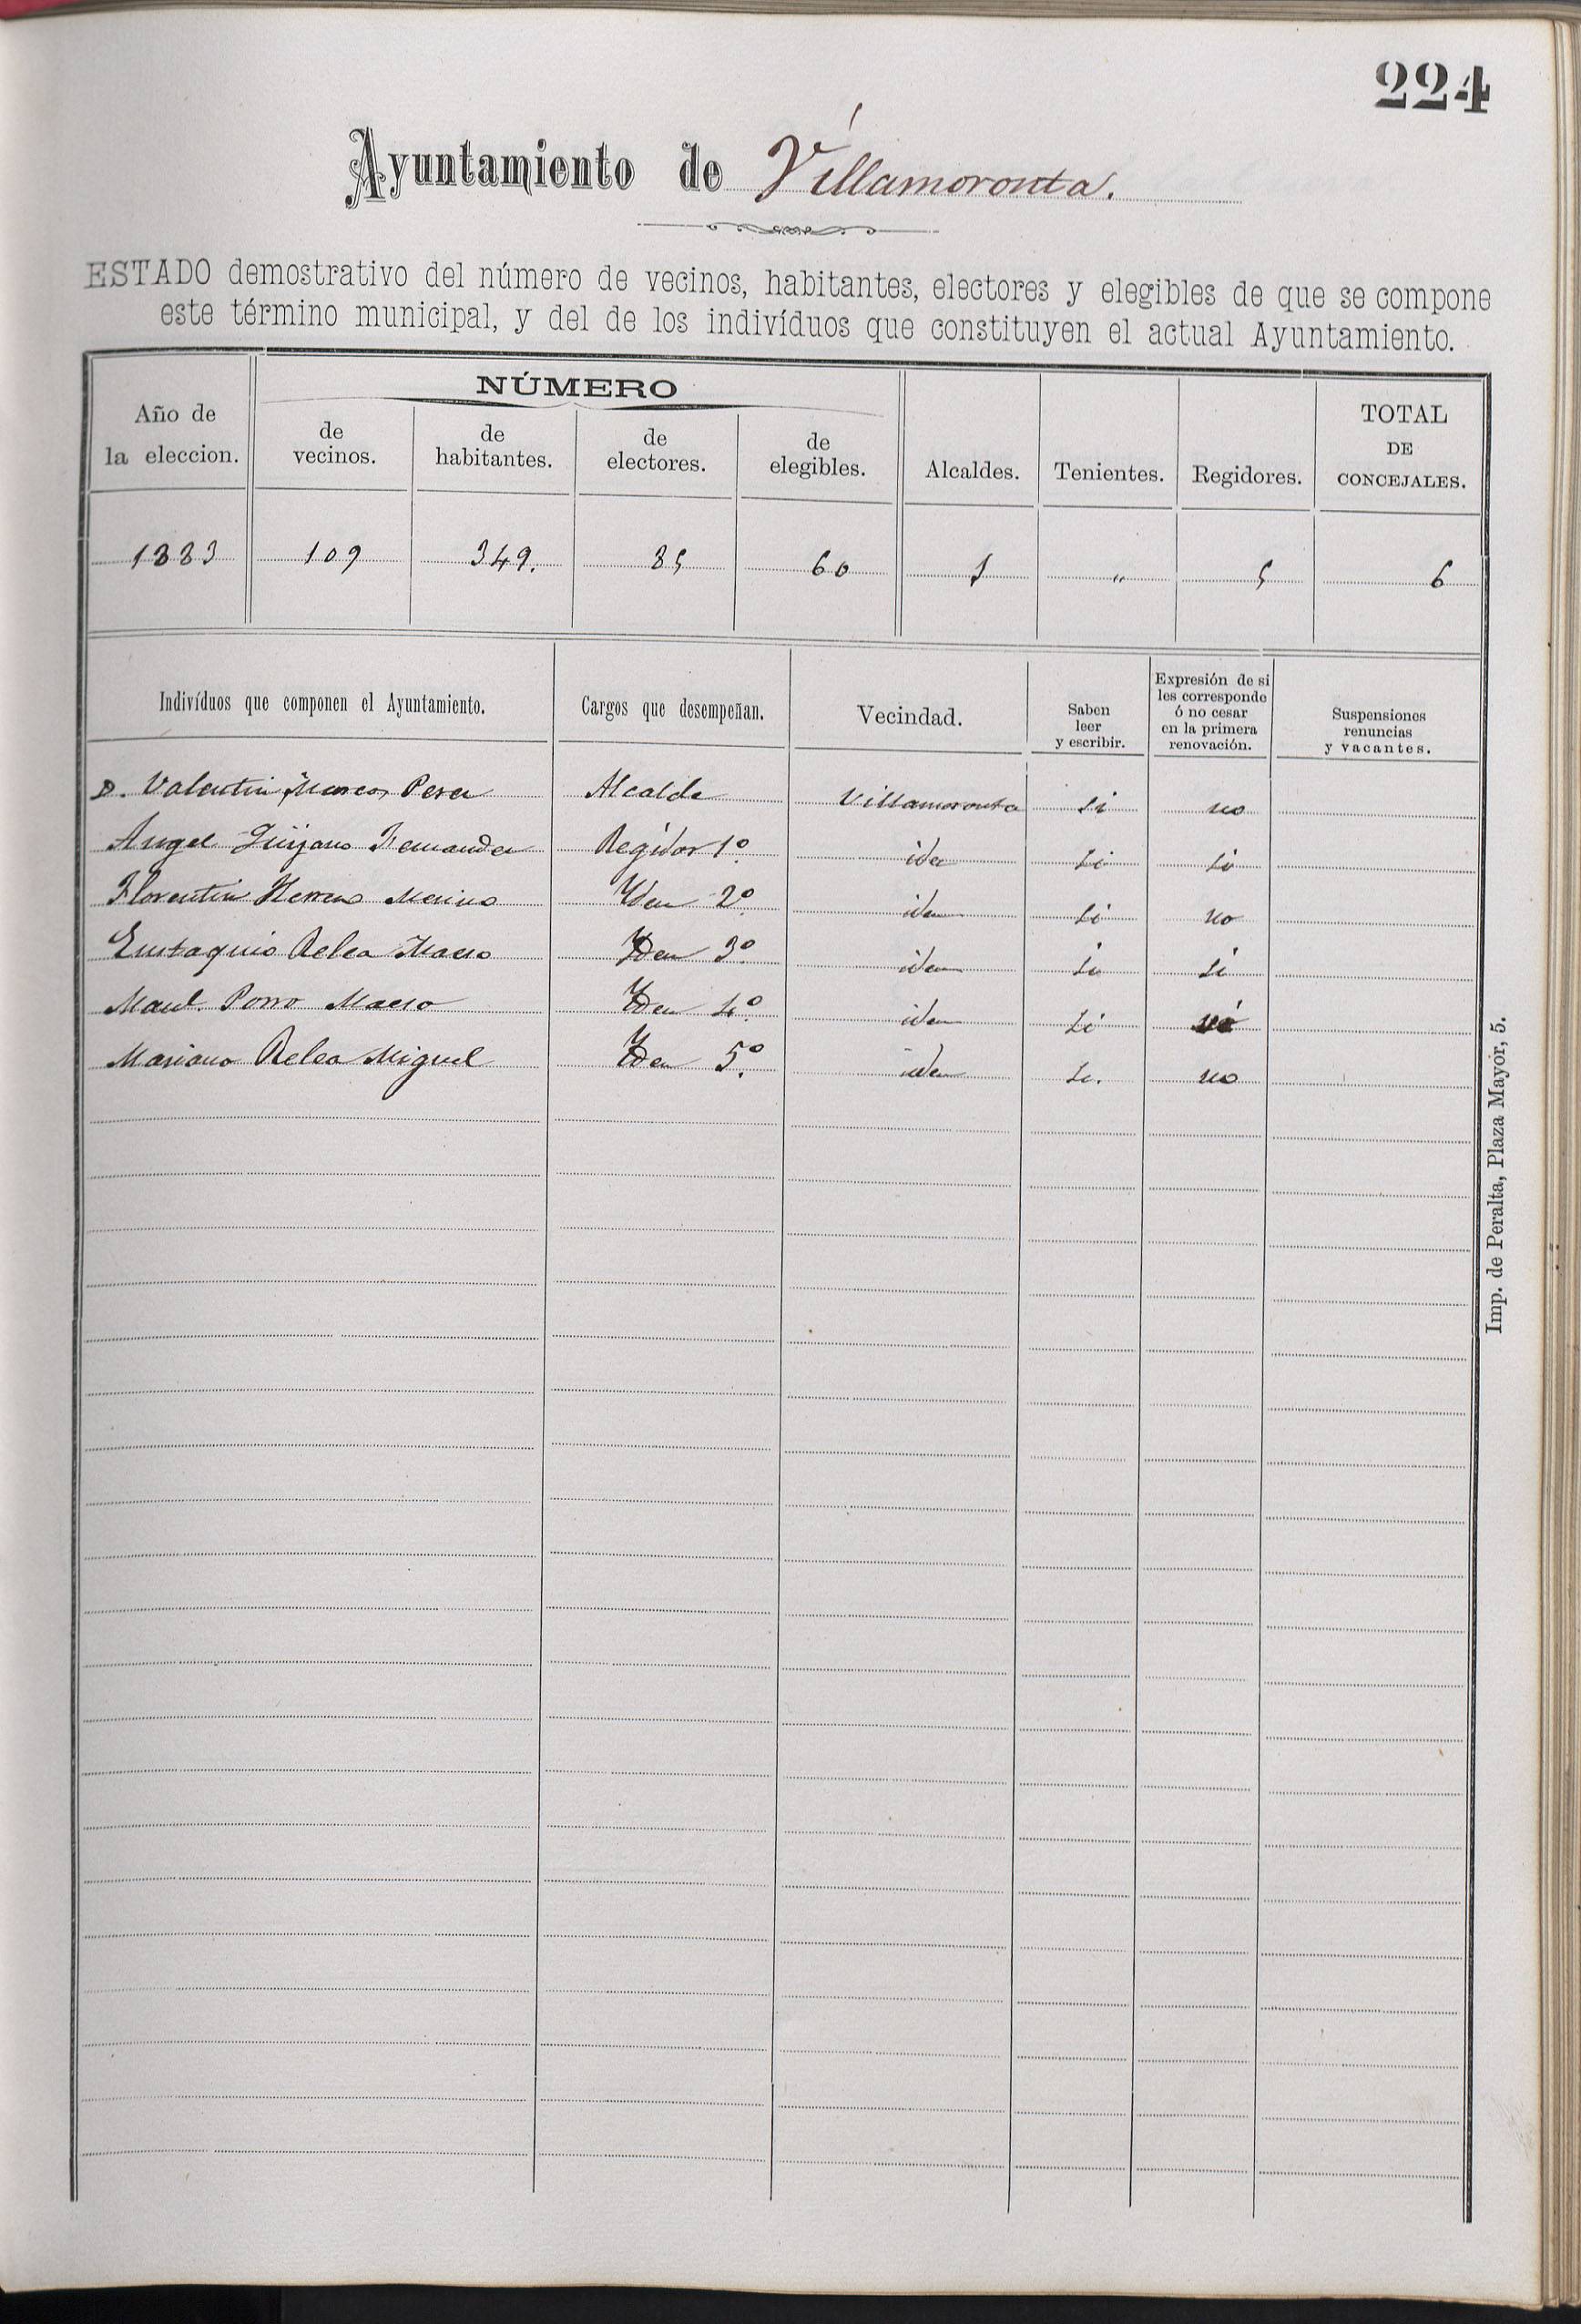 224
Ayuntamiento de Villamoronta.
ESTADO demostrativo del número de vecinos, habitantes, electores y elegibles de que se compone
este término municipal, y del de los indivíduos que constituyen el actual Ayuntamiento.
Año de la eleccion. NÚMERO de vecinos. de habitantes. de electores. de elegibles. Alcaldes. Tenientes. Regidores. TOTAL DE CONCEJALES.
1883 109 349. 85 60 1 " 5 6
Indivíduos que componen el Ayuntamiento. Cargos que desempeñan. Vecindad. Saben leer y escribir. Expresión de si les corresponde ó no cesar en la primera renovación. Suspensiones renuncias y vacantes.
D. Valentin Marcos Perez Alcalde Villamoronta Si no
Angel Quijano Fernandez Regidor 1º iden Si Si
Florentin Herrero Merino Yden 2º iden Si no
Eustaquio Relea Macro Yden 3º iden Si Si
Manl. Porro Macro Yden 4º iden Si
Mariano Relea Miguel Yden 5º iden Si. no
Imp. de Peralta, Plaza Mayor, 5.